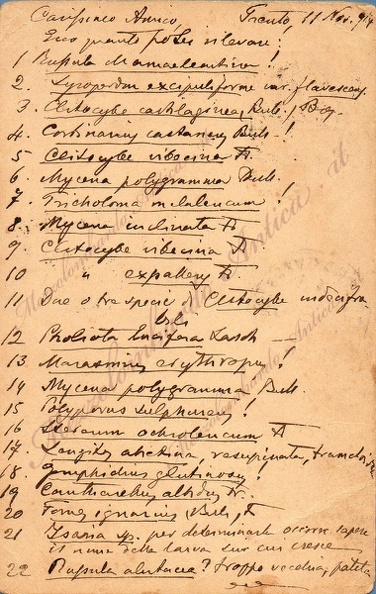 Carissimo Amico, Trento, 11 Nov. 914
Ecco quanto potei rilevare:
1 Russula
2. Lycoperdon excipuliforme var. flavescens
3. Clitocybe cartilaginea Bull. / Brs.
4. Cortinarius castaneus Bull.
5 Clitocybe vibecina Fr.
6. Mycena polygramma Bull.
7. Tricholoma melaleucum!
8. Mycena inclinata Fr
9. Clitocybe vibecina Fr
10 " expallens Fr.
11 Due o tre specie di Clitocybe
12 Pholiota lucifera Lasch
13 Marasmius erythropus!
14 Mycena polygramma Bull.
15 Polyporus sulphureus!
16 ochroleucum Fr
17. abietina, resupinata,
18. Gomphidius glutinosus!
19 Cantharellus albidus Fr.
20 Fomes igniarius Bull, Fr
21 Isaria sp. per determinarla occorre sapere
il nome della larva sur cui cresce
22 Russula alutacea? troppo vecchia,